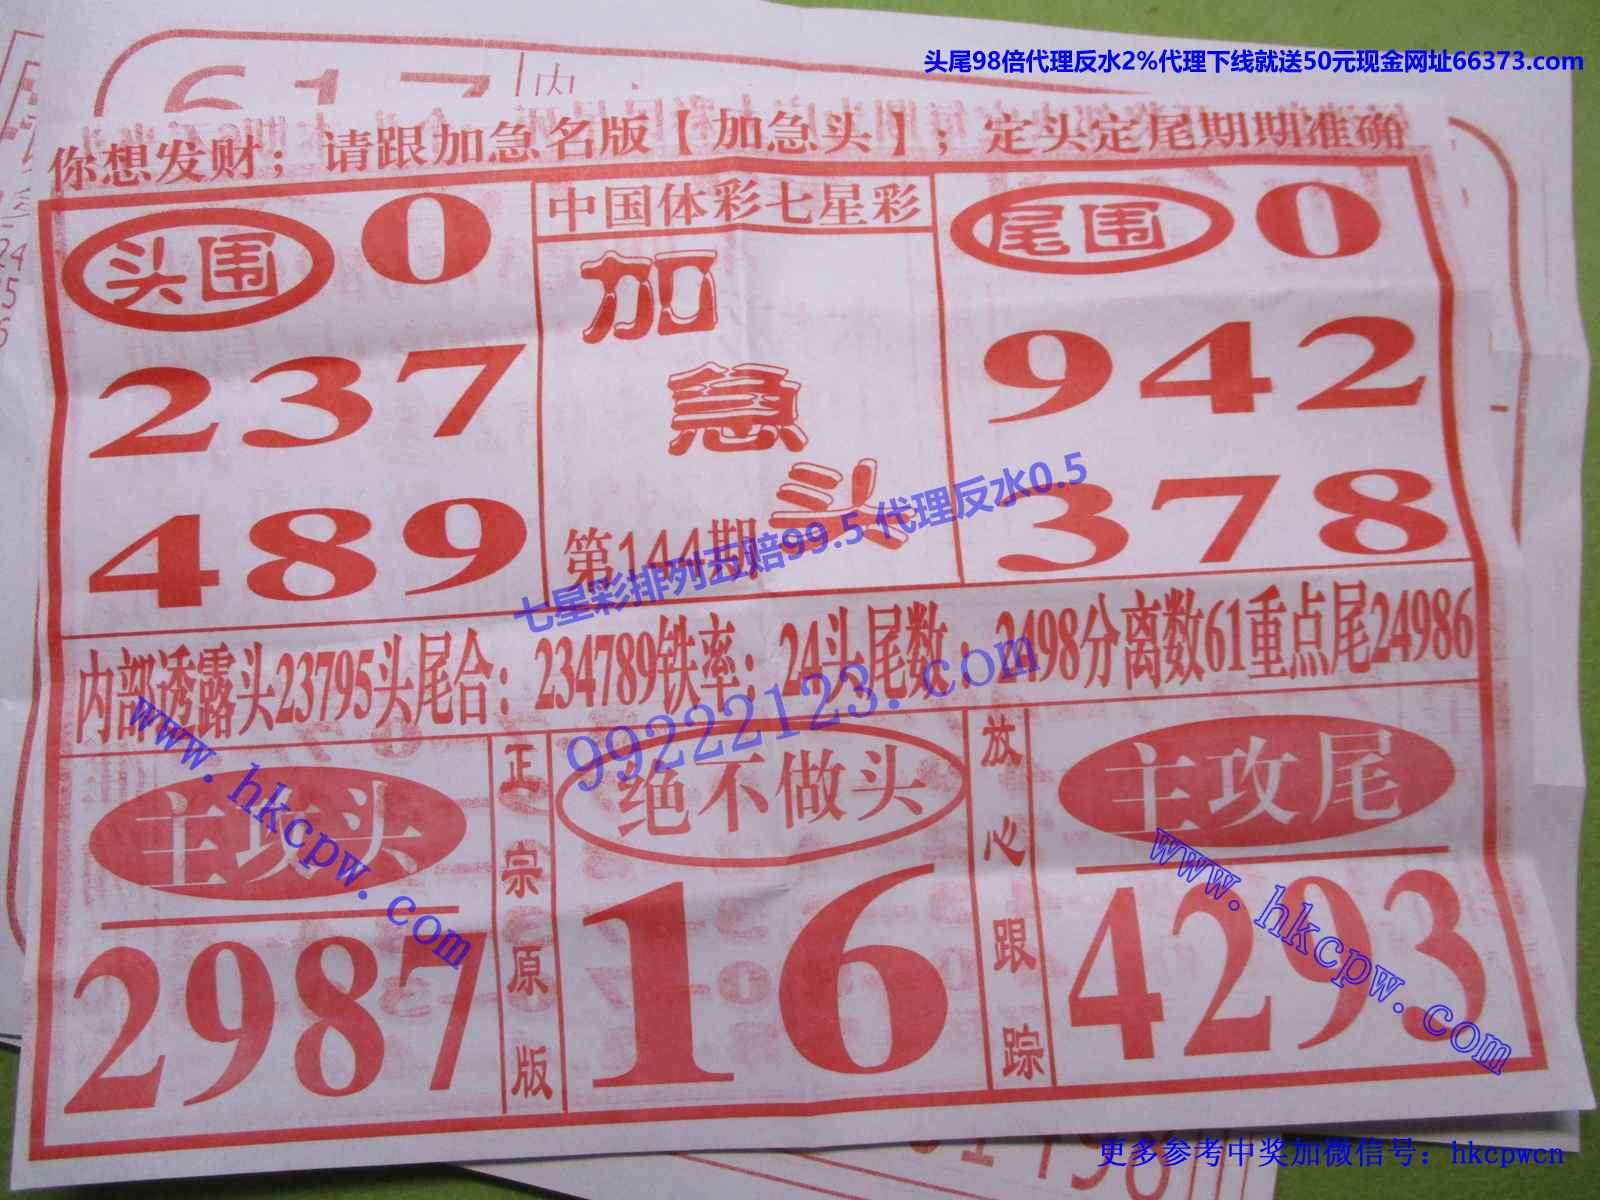 头尾98倍代理反水2%代理下线就送50元现金网址66373.com
617
内
你想发财；请跟加急名版【加急头】；定头定尾期期准确
头围 0
237
489
中国体彩七星彩
加
急
头
第144期
尾围 0
942
378
七星彩排列五赔99.5 代理反水0.5
内部透露头23795头尾合：234789铁率；24头尾数；2498分离数61重点尾24986
99222123.com
主攻头
2987
www.hkcpw.com
正宗原版
绝不做头
16
放心跟踪
主攻尾
4293
www.hkcpw.com
更多参考中奖加微信号：hkcpwcn